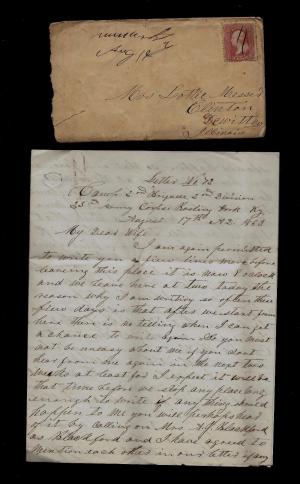 Aug 18
Mrs Lottie Messer
Clinton
Dewitt Co
Illinois
Letter No 12
Camp 2nd Brigade 2nd Division
23d Army Corps Roaling Fork Ky
August 17th AD. 1863
My Dear Wife
I am again permitted
to write you a few lines more before
leaving this place it is now 8 oclock
and we leave here at two today the
reason why I am writing so often these
few days is that after we start from
here there is no telling when I can get
a chance to write again So you must
not be uneasy about me if you dont
hear from me again in the next two
weeks at least for I expect it will be
that time before we stop any place long
enough to write if any thing should
happen to me you will perhaps hear
of it by calling on Mrs A.J. Blackford
as Blackford and I have agreed to
mention each other in our letters if any